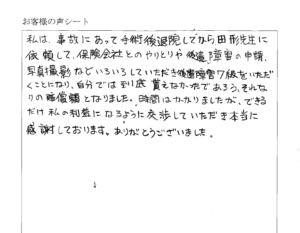 お客様の声シート
私は、事故にあって手術後退院してから田形先生に
依頼して、保険会社とのやりとりや後遺障害の申請、
写真撮影などいろいろしていただき後遺障害7級をいただ
くことになり、自分では到底貰えなかったであろう、それな
りの賠償額となりました。時間はかかりましたが、できる
だけ私の利益になるように交渉していただき本当に
感謝しております。ありがとうございました。